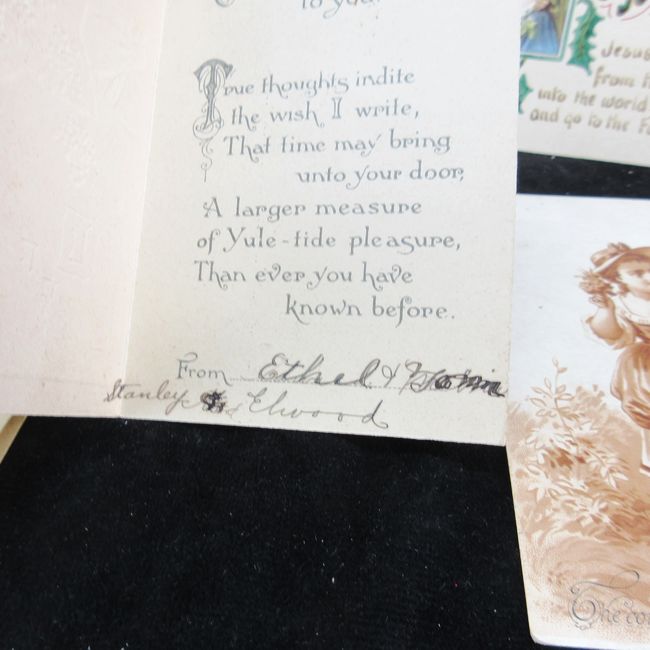 to you.
True thoughts indite
the wish I write,
That time may bring
unto your door,
A larger measure
of Yule-tide pleasure,
Than ever you have
known before.
From Ethel &
Stanley & Elwood
Jesus
from
unto the world
and go to the Fa
The co